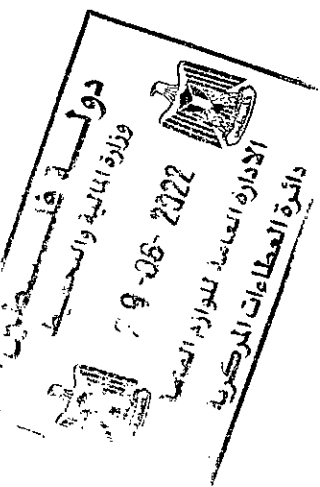 دولة فلسطين
وزارة المالية والتخطيط
9-06-2022
الإدارة العامة للوازم العامة
دائرة العطاءات المركزية